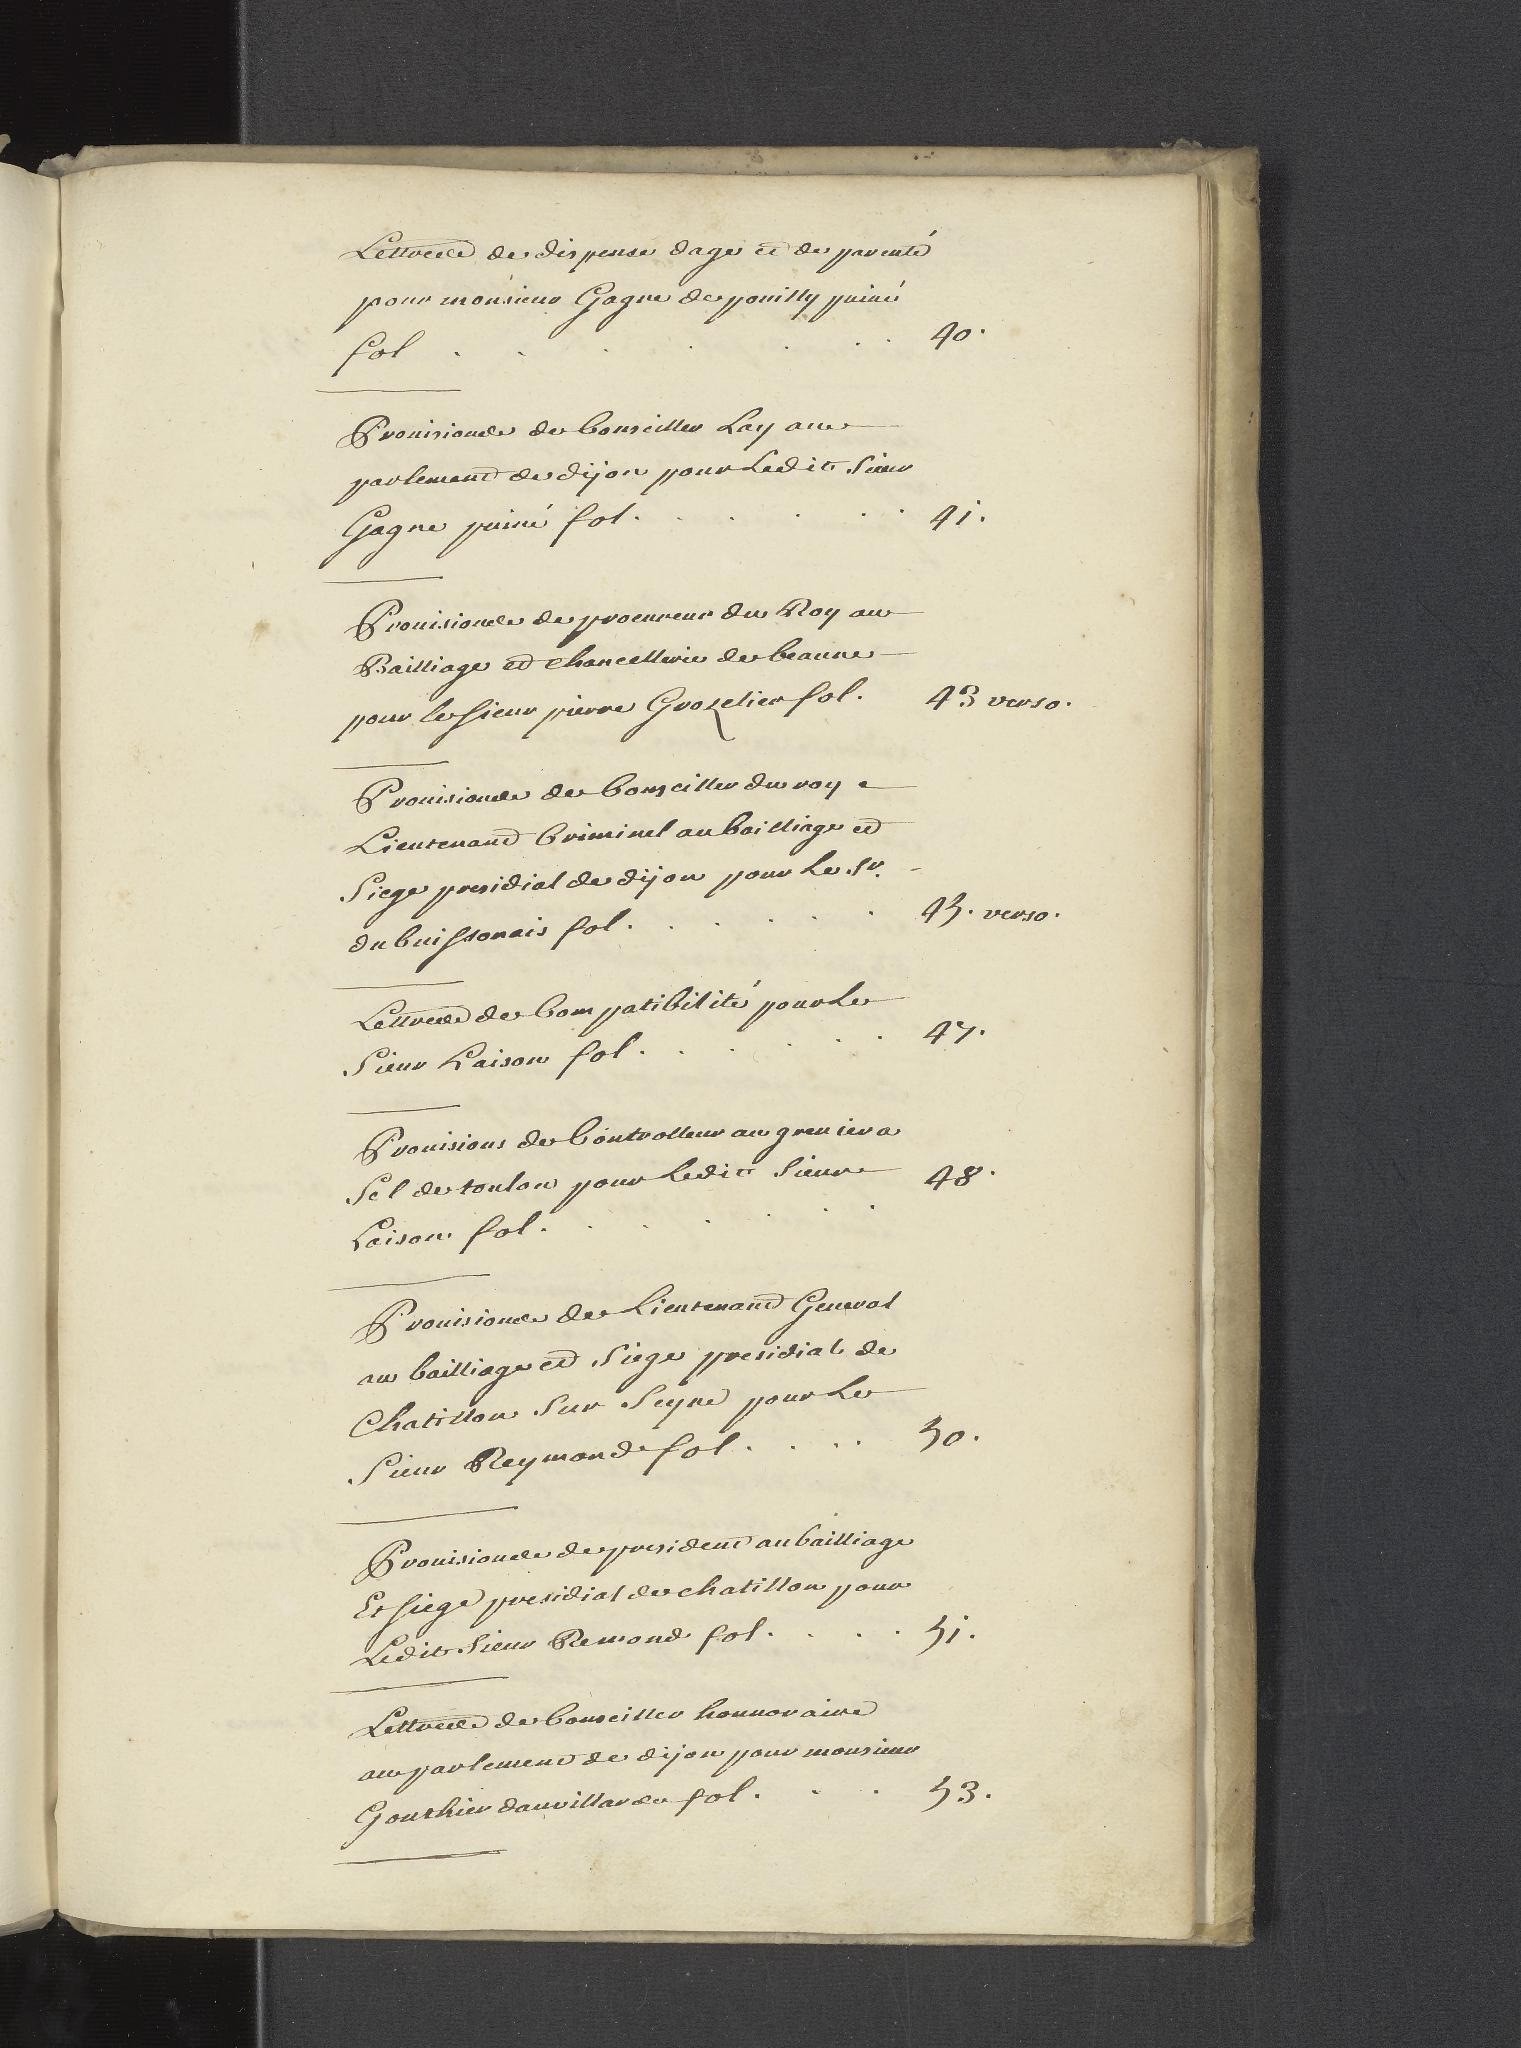 Lettres de dispense dage et de parenté
pour monsieur Gagne de pouilly puiné
fol . . . . . . . 40.
Prouisions de Conseiller Lay au
parlement de dijon pour Ledit Sieur
Gagne puiné fol. . . . . . 41.
Prouisions de procureur du Roy au
Bailliage et chancellerie de beaune
pour le sieur pierre Grozelier fol. 43 verso.
Prouisions de Conseiller du roy
Lieutenant Criminel au bailliage et
Siege presidial de dijon pour Le Sr.
du buissonais fol. . . . . . 45. verso.
Lettres de Compatibilité pour Le
Sieur Laison fol. . . . . . 47.
Prouisions de Controlleur au grenier a
Sel de toulon pour Ledit Sieur
Laison fol. . . . . . . 48.
Prouisions de Lieutenant General
au bailliage et Siege presidial de
Chatillon Sur Seyne pour Le
Sieur Reymond fol. . . . 50.
Prouisions de president au bailliage
Et siege presidial de chatillon pour
Ledit Sieur Remond fol. . . . 51.
Lettres de Conseiller honnoraire
au parlement de dijon pour monsieur
Gouthier dauvillars fol. . . 53.